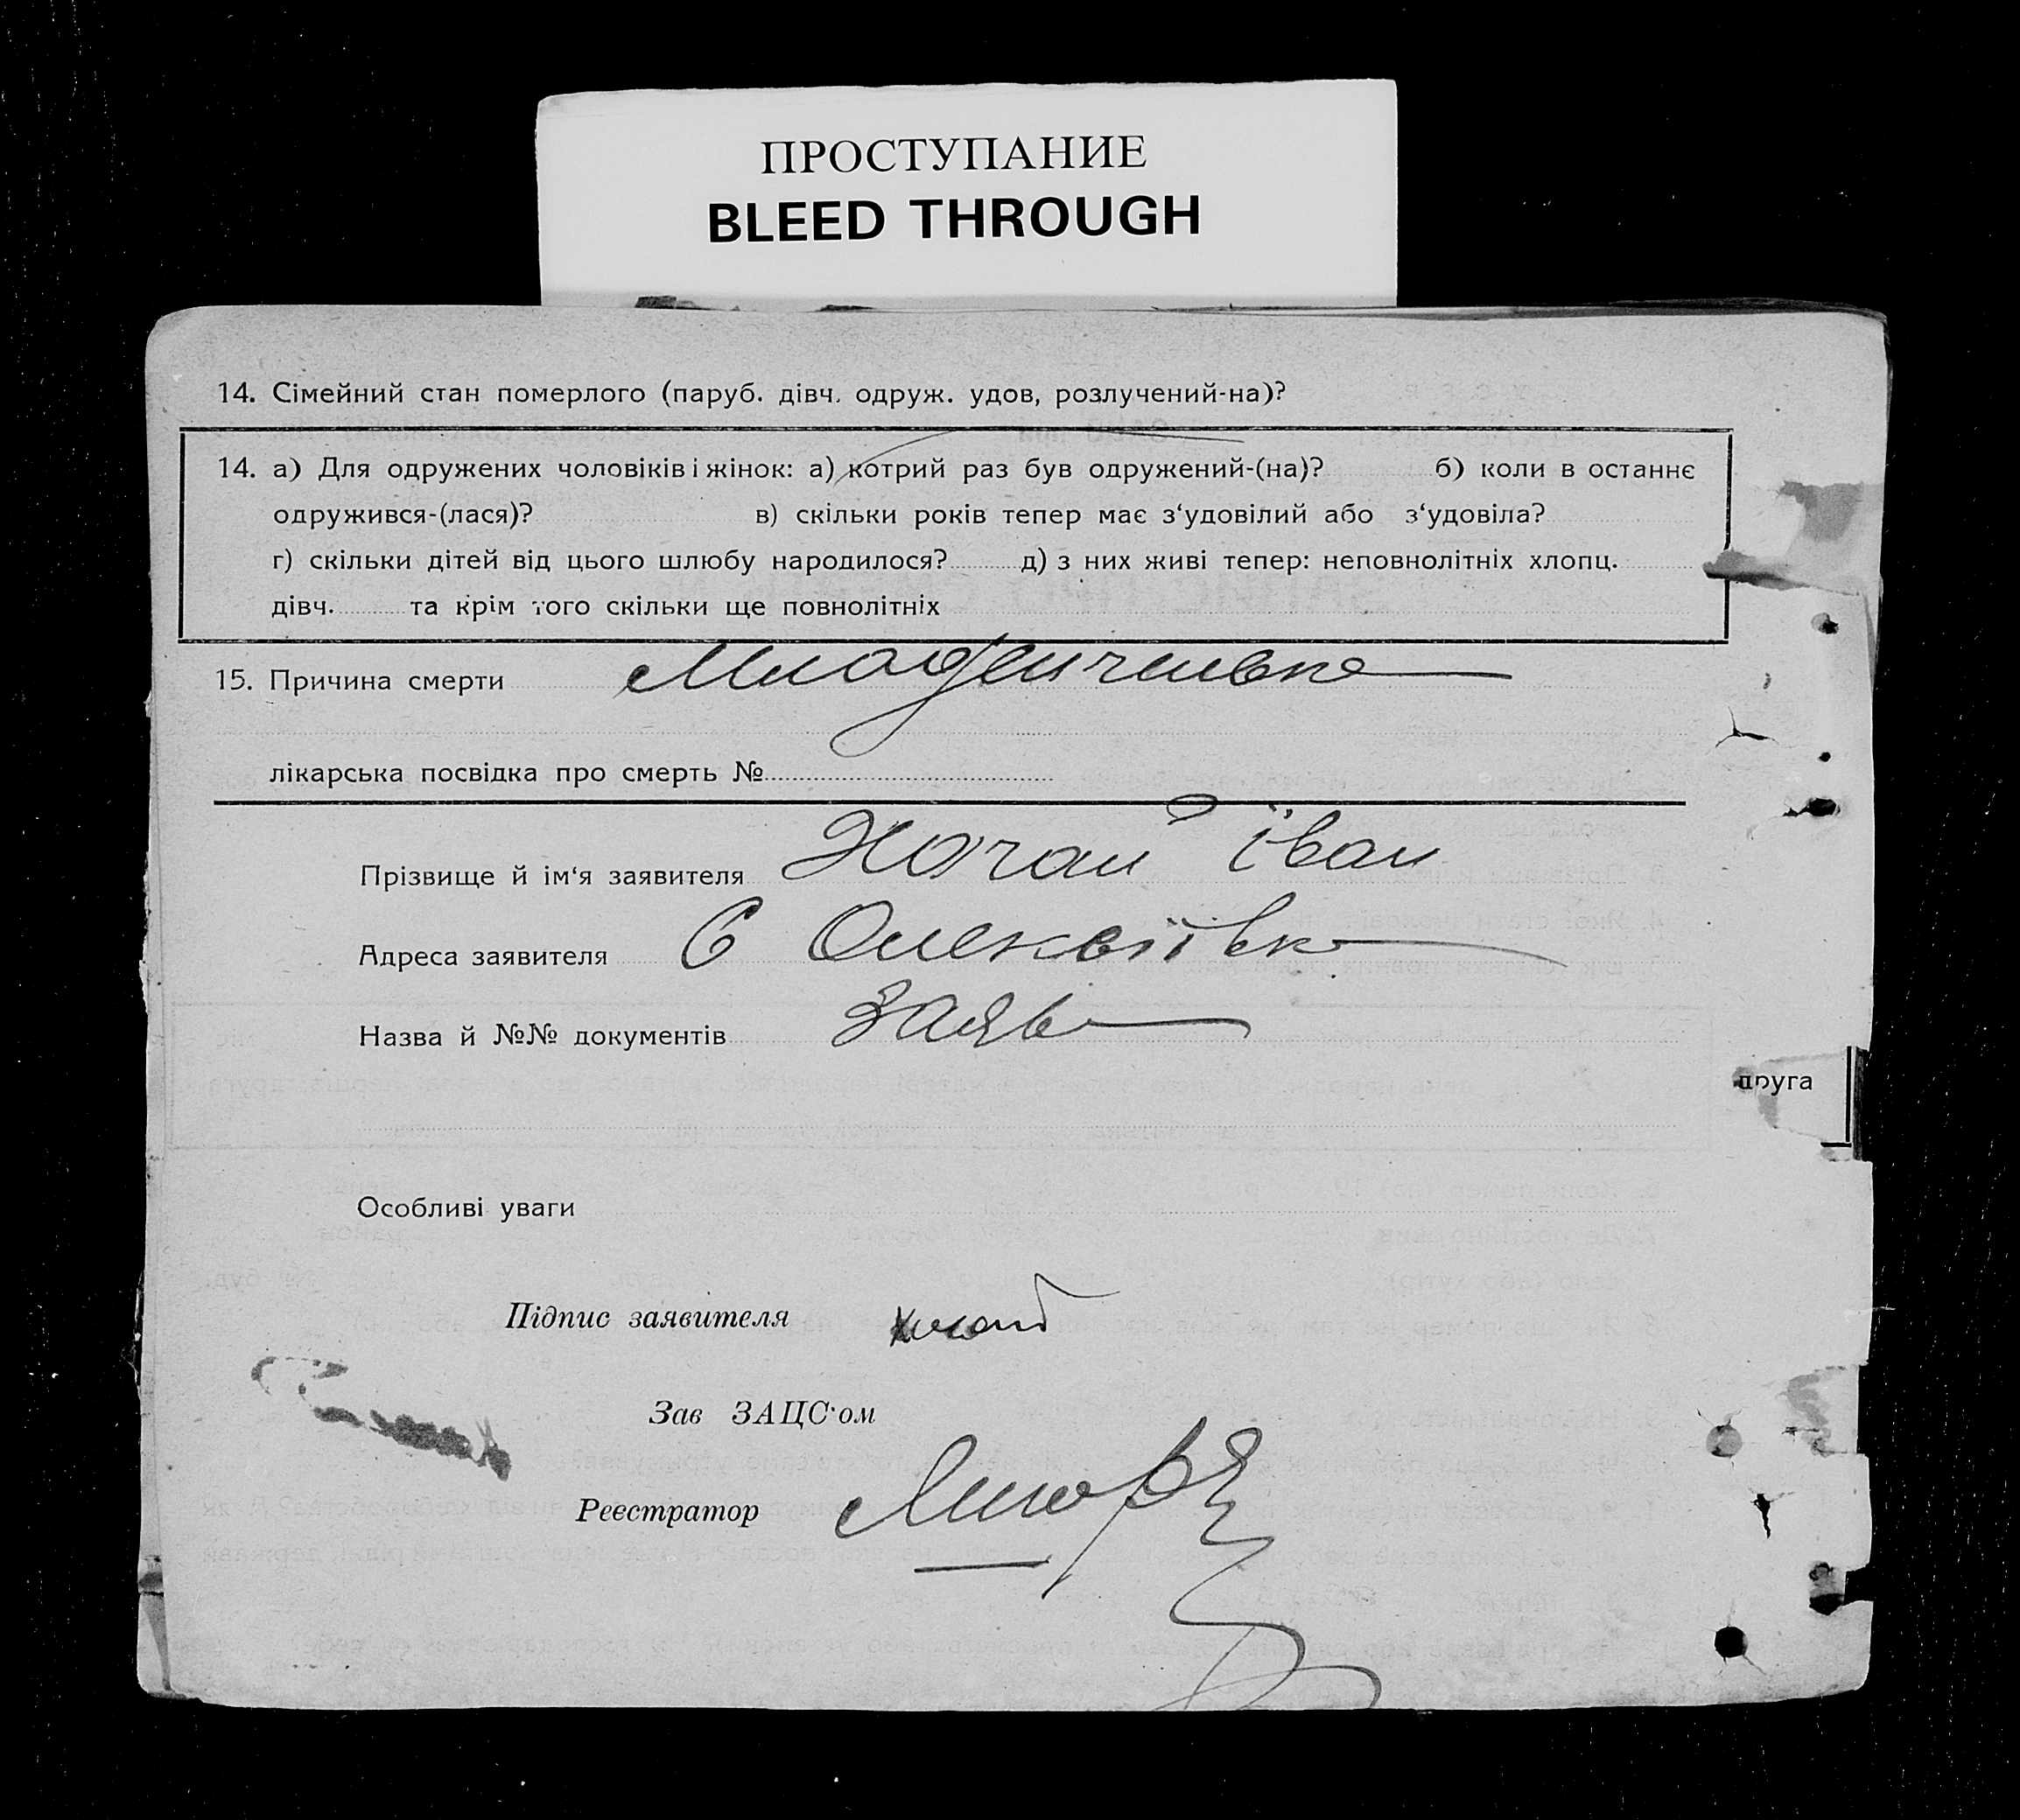 ПРОСТУПАНИЕ
BLEED THROUGH
14. Сімейний стан померлого (паруб. дівч. одруж. удов, розлучений-на)?
14. а) Для одружених чоловіків і жінок: а) котрий раз був одружений-(на)? б) коли в останнє
одружився-(лася)? в) скільки років тепер має з‘удовілий або з‘удовіла?
г) скільки дітей від цього шлюбу народилося? д) з них живі тепер: неповнолітніх хлопц.
дівч. та крім того скільки ще повнолітніх
15. Причина смерти Младенчивка
лікарська посвідка про смерть №
Прізвище й ім‘я заявителя Іван
Адреса заявителя С Олексіївка
Назва й №№ документів Заява
друга
Особливі уваги
Підпис заявителя
Зав ЗАЦС‘ом
Реєстратор